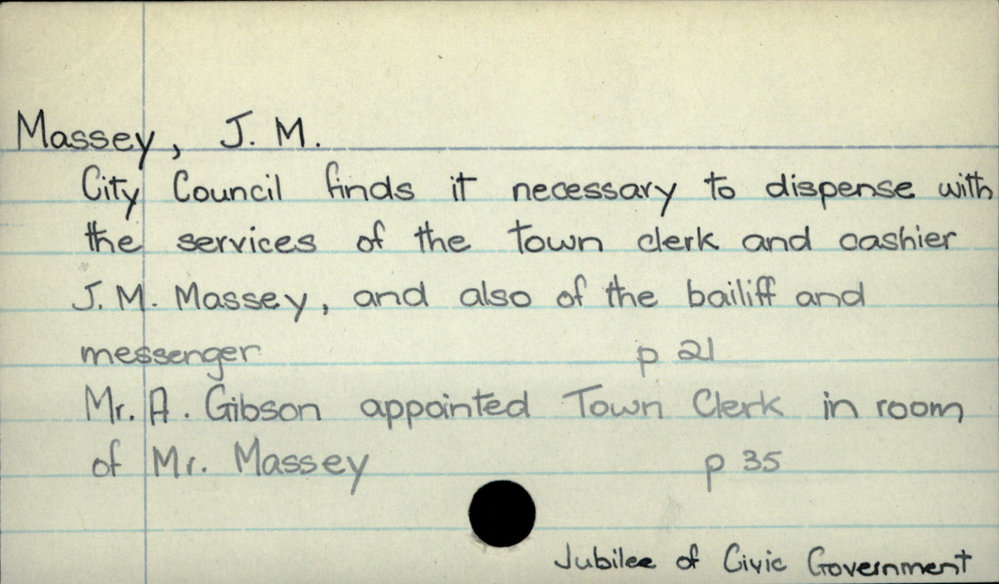 Massey, J. M.
City Council finds it necessary to dispense with
the services of the town clerk and cashier
J. M. Massey, and also of the bailiff and
messenger p 21
Mr. A. Gibson appointed Town Clerk in room
of Mr. Massey p 35
Jubilee of Civic Government